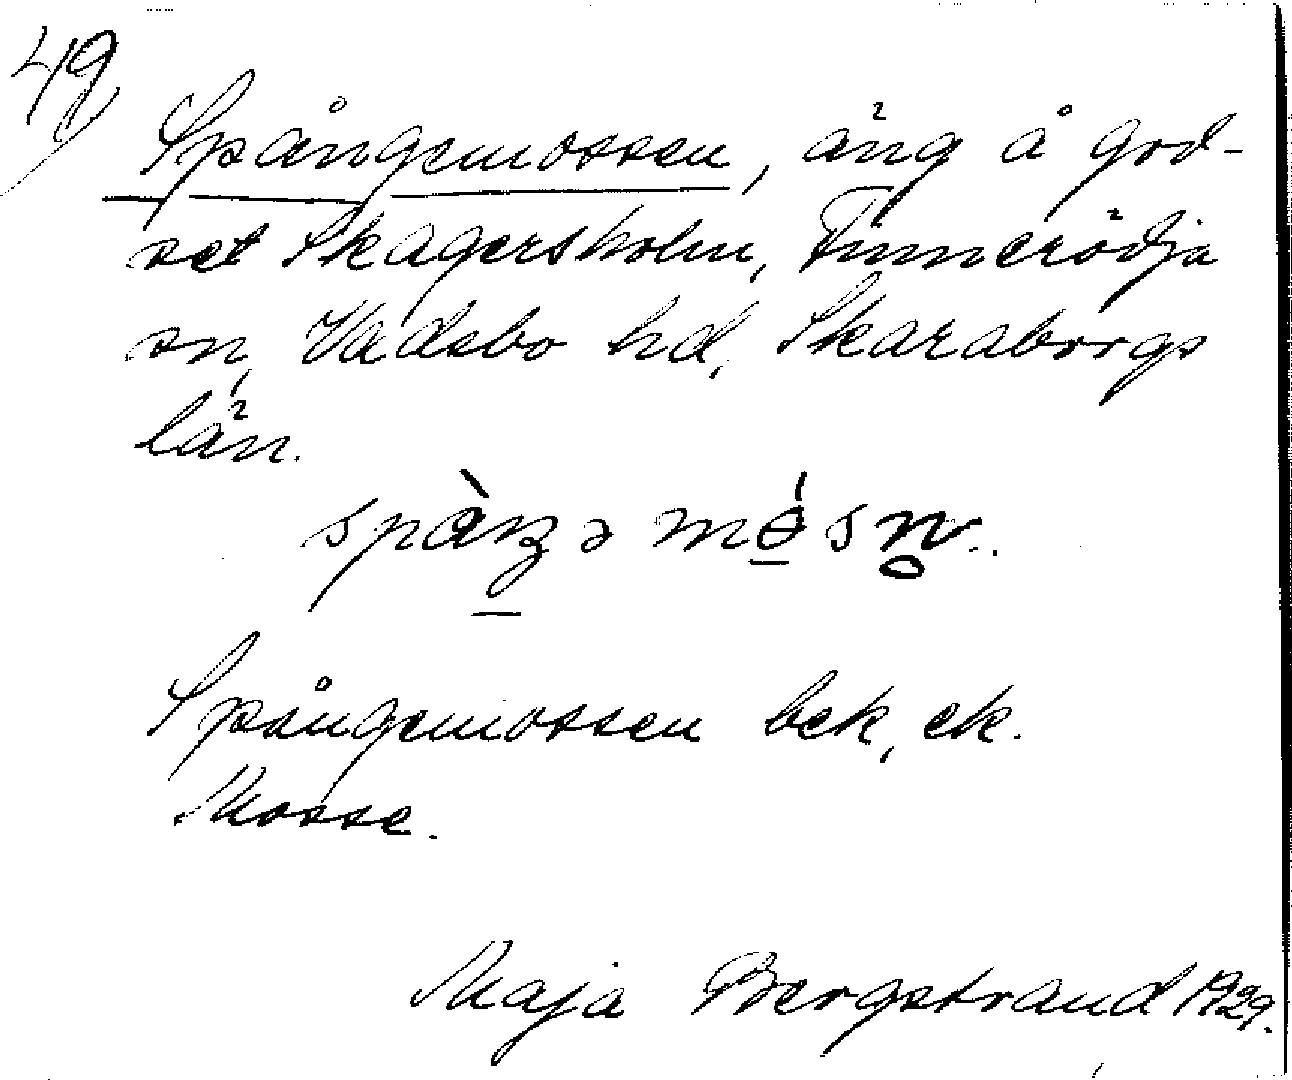 49
Spångemossen, äng å god-
set Skagersholm, Finnerödja
sn, Vadsbo hd, Skaraborgs
län.
spàŋə mɵ́sn̥.
Spångemossen bek, ek.
Mosse.
Maja Bergstrand 1929.